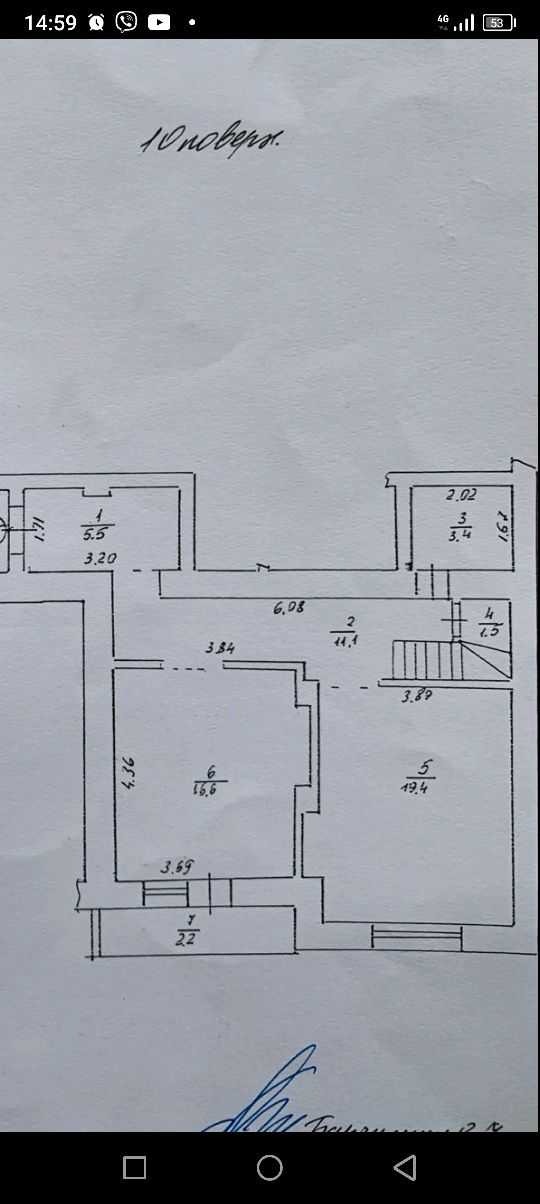 14:59
4G
53
10 поверх.
1
5.5
1.71
3.20
2.02
3
3.4
1.67
6.08
2
11.1
4
1.5
3.84
3.87
4.36
6
16.6
5
19.4
3.69
7
2.2